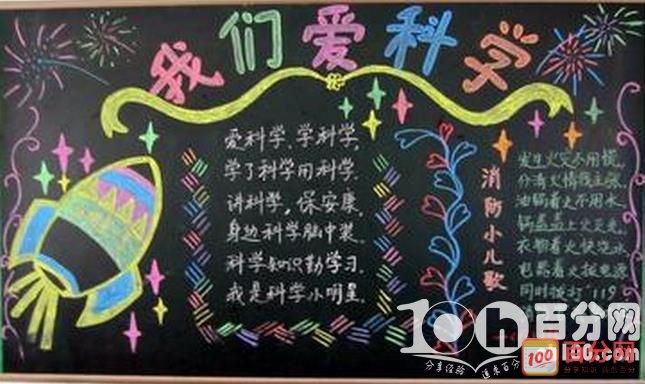 我们爱科学
爱科学、学科学,
学了科学用科学.
讲科学，保安康,
身边科学脑中装.
科学知识勤学习.
我是科学小明星.
消防小儿歌
发生火灾不用慌,
分清火情我主张.
油锅着火不用水,
锅盖盖上火灭光.
衣物着火快浇水
电器着火拔电源
同时拨打"119
百分网
分享经验
100
百分网